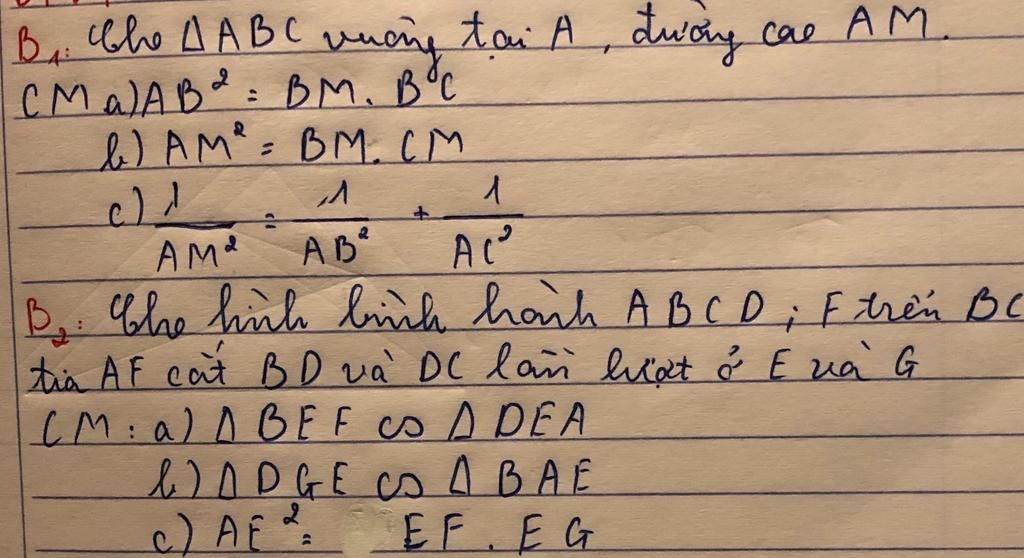 B₁: Cho ΔABC vuông tại A, đường cao AM.
CM a) AB² = BM. BC
b) AM² = BM. CM
c) 1/AM² = 1/AB² + 1/AC²
B₂: Cho hình bình hành ABCD; F trên BC
tia AF cắt BD và DC lần lượt ở E và G
CM: a) Δ BEF ∽ Δ DEA
b) Δ DGE ∽ Δ BAE
c) AE² = EF. EG